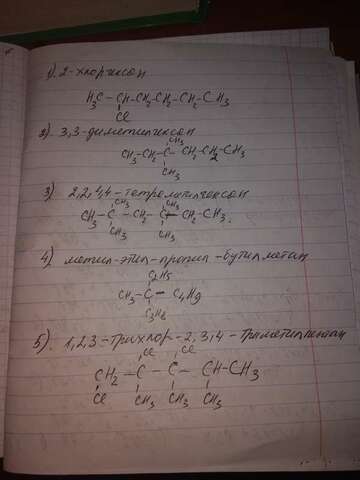 1). 2-хлоргексан
H₃C-CH-CH₂-CH₂-CH₂-CH₃
Cl
2) 3,3-диметилгексан
CH₃
CH₃-CH₂-C-CH₂-CH₂-CH₃
CH₃
3) 2,2,4,4-тетрометилгексан
CH₃ CH₃
CH₃-C-CH₂-C-CH₂-CH₃.
CH₃ CH₃
4) метил-этил-пропил-бутилметан
C₂H₅
CH₃-C-C₄H₉
C₃H₈
5). 1,2,3-трихлор-2,3,4-триметилпентан
Cl Cl
CH₂-C-C-CH-CH₃
Cl CH₃ CH₃ CH₃